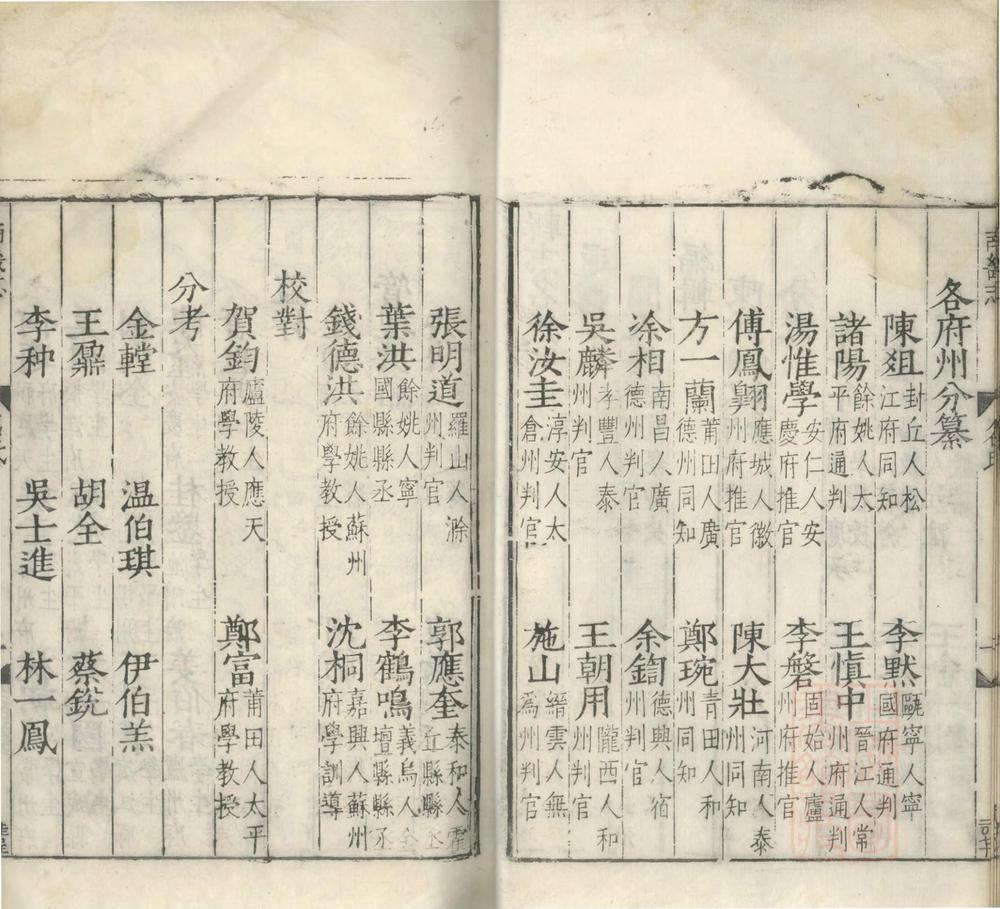 各府州分纂
陳爼封丘人松江府同知 李默甌寧人寧國府通判
諸陽餘姚人太平府通判 王慎中晉江人常州府通判
湯惟學安仁人安慶府推官 李磐固始人廬州府推官
傅鳳翺應城人徽州府推官 陳大壯河南人泰州同知
方一蘭莆田人廣德州同知 鄭琬青田人和州同知
凃相南昌人廣德州判官 余鍧德興人宿州判官
吳麟孝豐人泰州判官 王朝用隴西人和州判官
徐汝圭淳安人太倉州判官 施山縉雲人無為州判官
張明道羅山人滁州判官 郭應奎泰和人霍丘縣縣丞
葉洪餘姚人寧國縣縣丞 李鶴鳴義烏人金壇縣縣丞
錢德洪餘姚人蘇州府學教授 沈桐嘉興人蘇州府學訓導
校對
賀鈞廬陵人應天府學教授 鄭富莆田人太平府學教授
分考
金𨎖 温伯琪 伊伯羔
王鼐 胡全 蔡銳
李种 吳士進 林一鳳